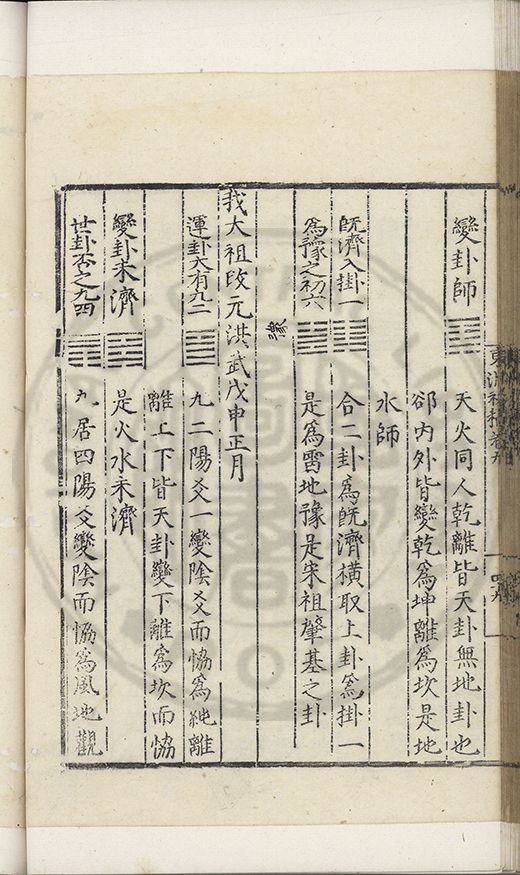 變卦師
天火同人乾離皆天卦無地卦也
郤内外皆變乾爲坤離爲坎是地
水師
旣濟入掛一
合二卦爲旣濟橫取上卦爲掛一
爲豫之初六
是爲雷地豫是宋祖肇基之卦
豫
我大祖改元洪武戊申正月
運卦大有九二
九二陽爻一變陰爻而恊爲純離
離上下皆天卦變下離爲坎而恊
變卦未濟
是火水未濟
世卦否之九四
九居四陽爻變陰而恊爲風地觀